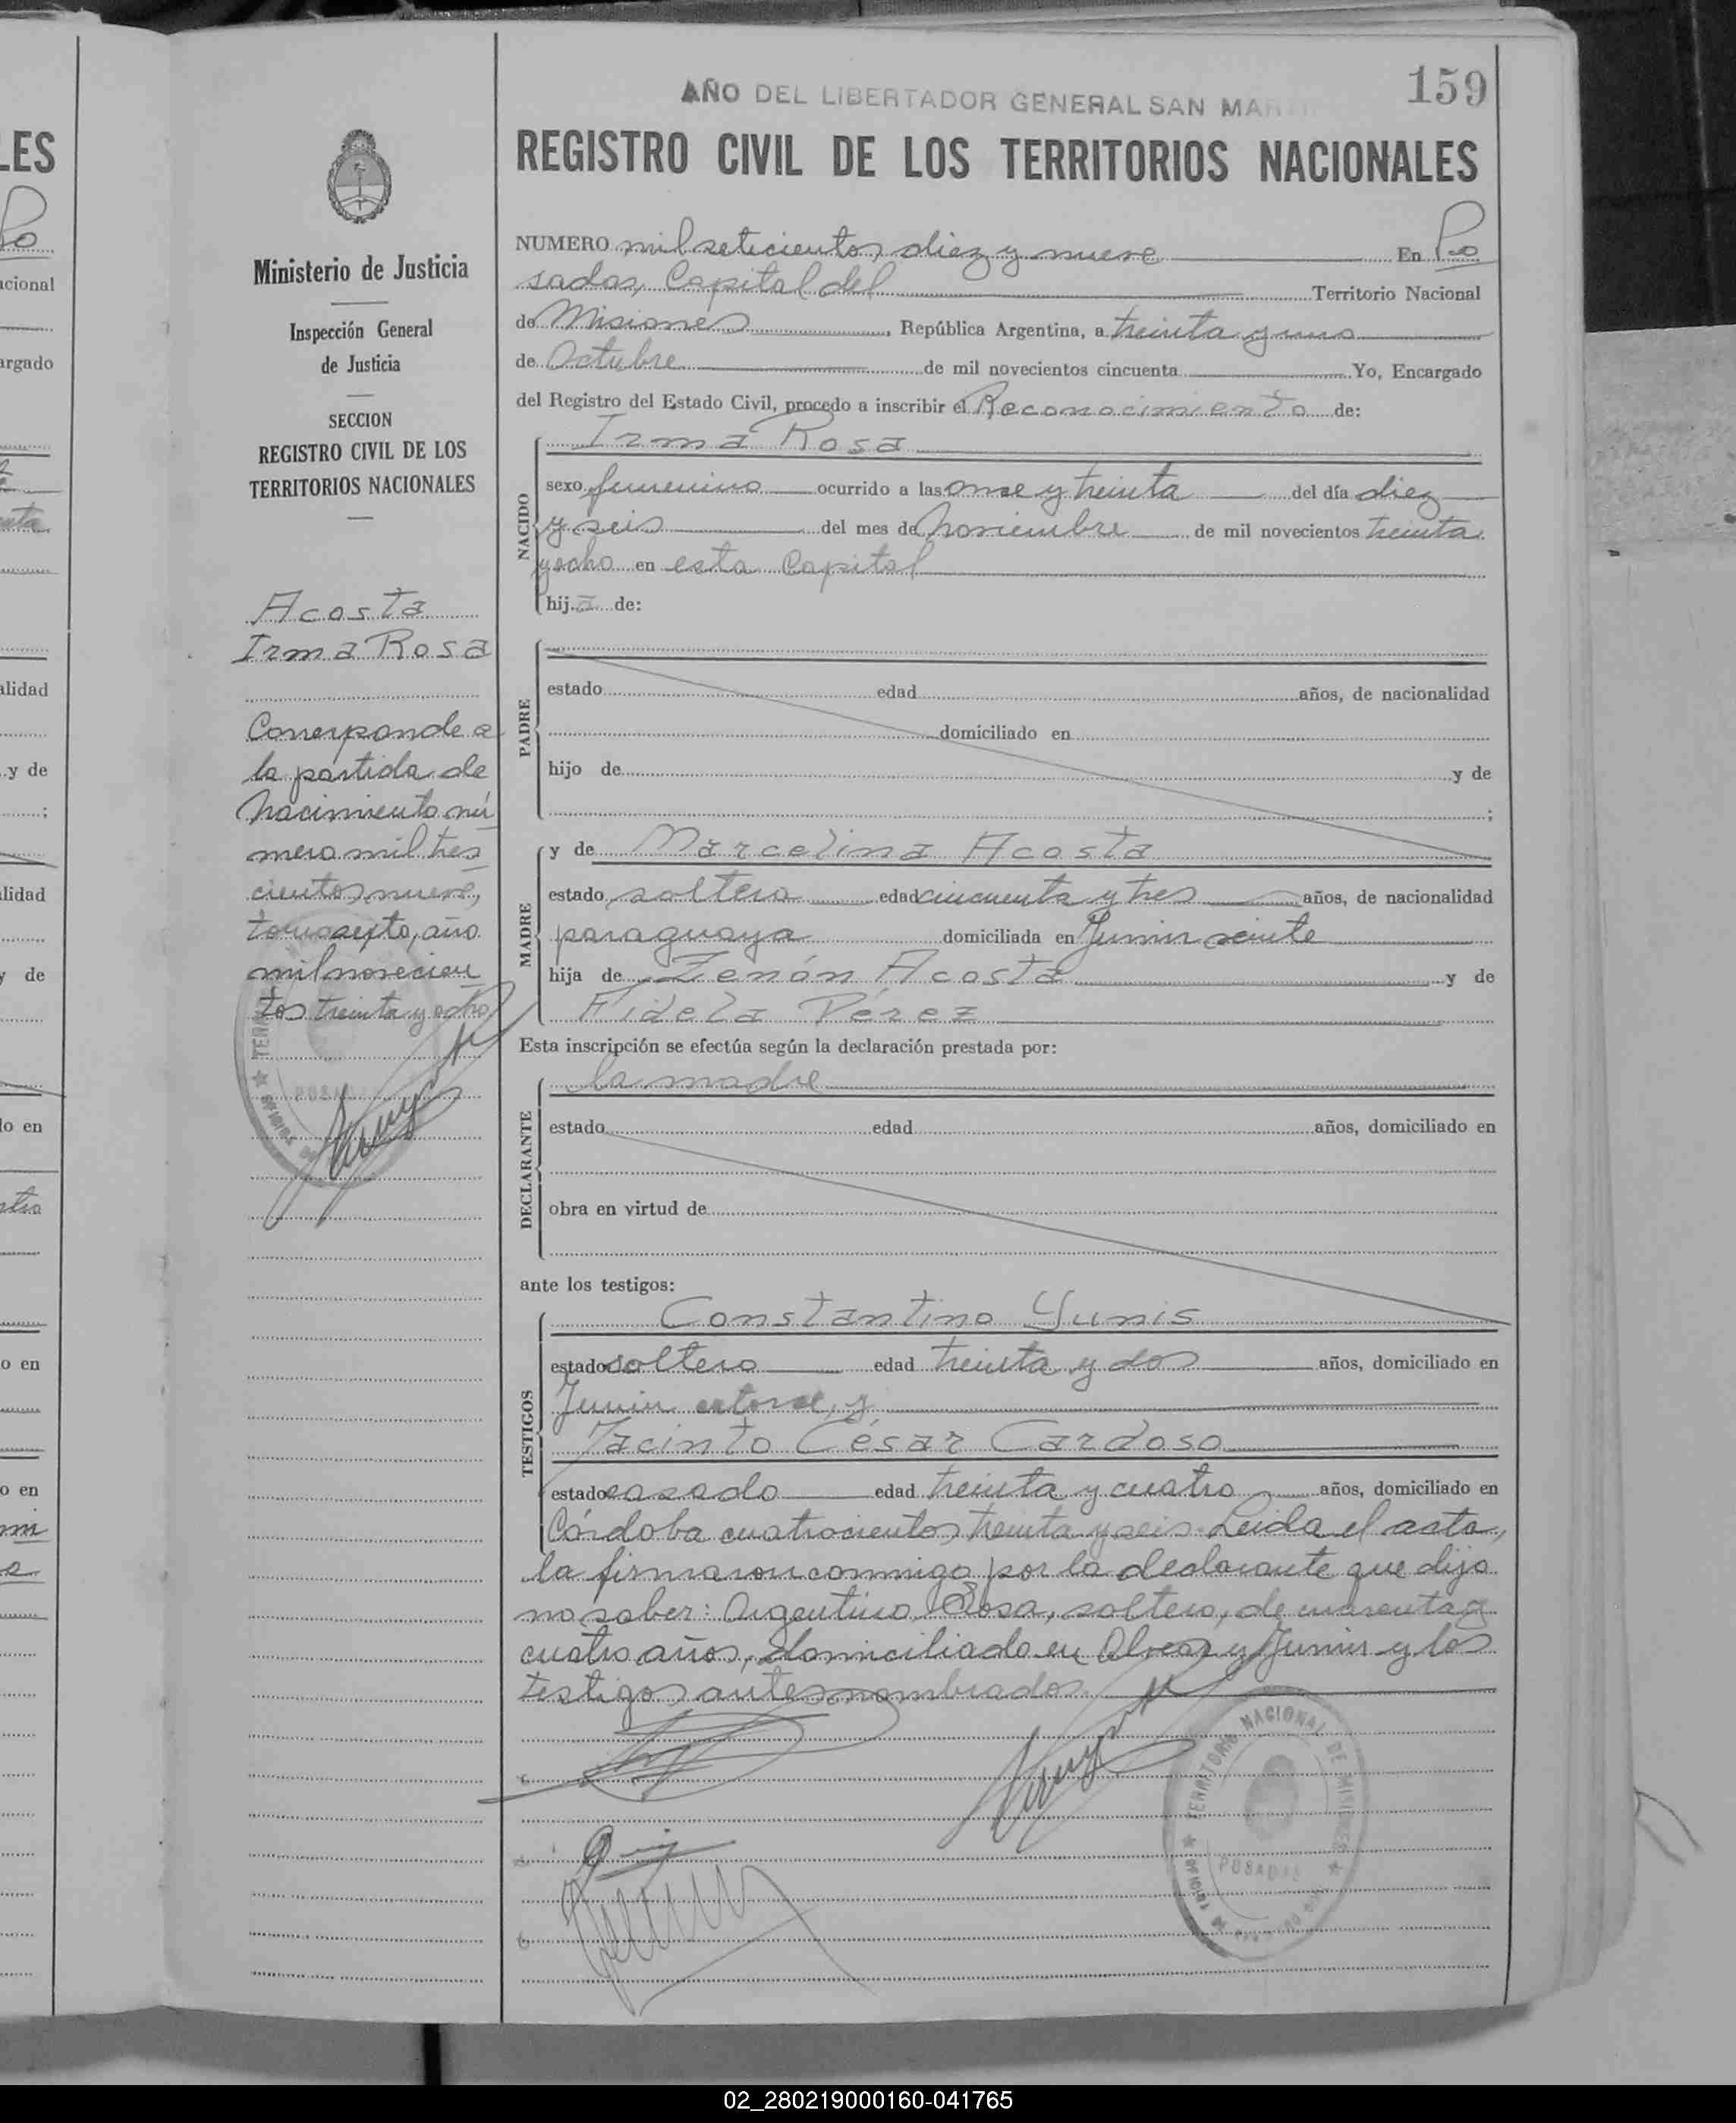 AÑO DEL LIBERTADOR GENERAL SAN MAR
159
REGISTRO CIVIL DE LOS TERRITORIOS NACIONALES
Ministerio de Justicia
Inspección General
de Justicia
SECCION
REGISTRO CIVIL DE LOS
TERRITORIOS NACIONALES
Acosta
Irma Rosa
Corresponde a
la partida de
Nacimiento nú
mero mil tres
cientos nueve,
tomo sexto, año
mil novecien
tos treinta y ocho
NUMERO mil seticientos diez y nueve En Po
sadas, Capital del Territorio Nacional
de Misiones, República Argentina, a treinta y uno
de Octubre de mil novecientos cincuenta Yo, Encargado
del Registro del Estado Civil, procedo a inscribir el Reconocimiento de:
NACIDO
Irma Rosa
sexo femenino ocurrido a las once y treinta del día diez
y seis del mes de Noviembre de mil novecientos treinta
y ocho en esta Capital
hija de:
PADRE
estado edad años, de nacionalidad
domiciliado en
hijo de y de
;
MADRE
y de Marcelina Acosta
estado soltera edad cincuenta y tres años, de nacionalidad
paraguaya domiciliada en Junin veinte
hija de Zenón Acosta y de
Fidela Pérez
Esta inscripción se efectúa según la declaración prestada por:
DECLARANTE
la madre
estado edad años, domiciliado en
obra en virtud de
ante los testigos:
TESTIGOS
Constantino Yunis
estado soltero edad treinta y dos años, domiciliado en
Junin catorce, y
Jacinto César Cardoso
estado casado edad treinta y cuatro años, domiciliado en
Córdoba cuatrocientos treinta y seis. Leida el acta,
la firmaron conmigo por la declarante que dijo
no saber: Argentino Sosa, soltero, de cuarenta y
cuatro años, domiciliado en Alvear y Junin y los
testigos antes nombrados.
TERRITORIO NACIONAL DE MISIONES
POSADAS
02_280219000160-041765